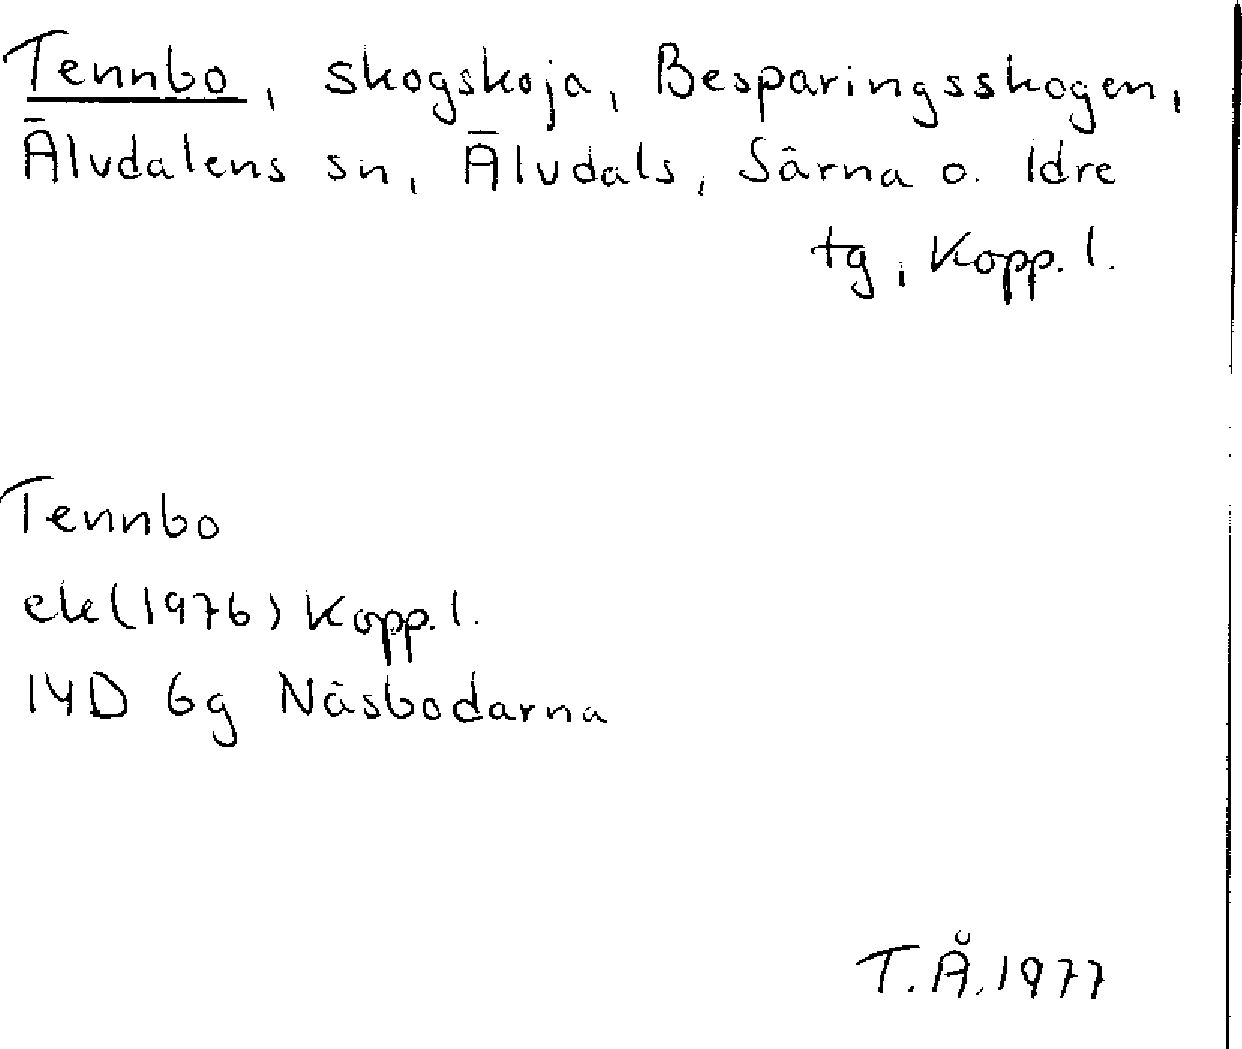 Tennbo, skogskoja, Besparingsskogen,
Älvdalens sn, Älvdals, Särna o. Idre
tg, Kopp. l.
Tennbo
ek(1976) Kopp. l.
14D 6g Näsbodarna
T.Å. 1977